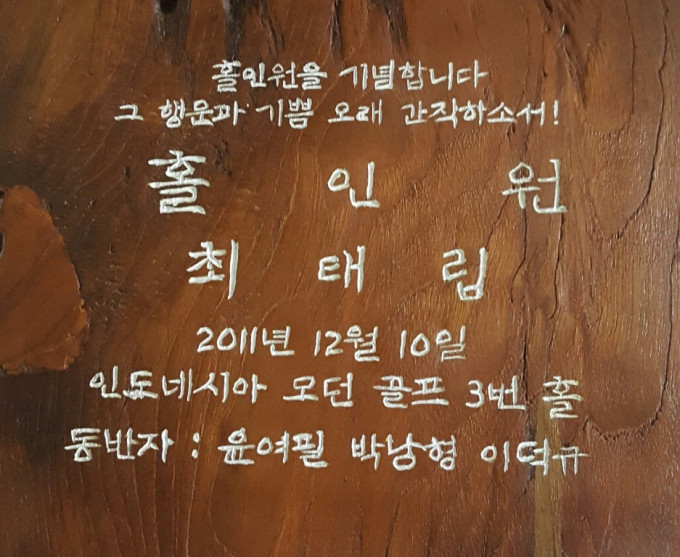 홀인원을 기념합니다
그 행운과 기쁨 오래 간직하소서!
홀 인 원
최 태 립
2011년 12월 10일
인도네시아 모던 골프 3번 홀
동반자 : 윤여필 박낭형 이덕규